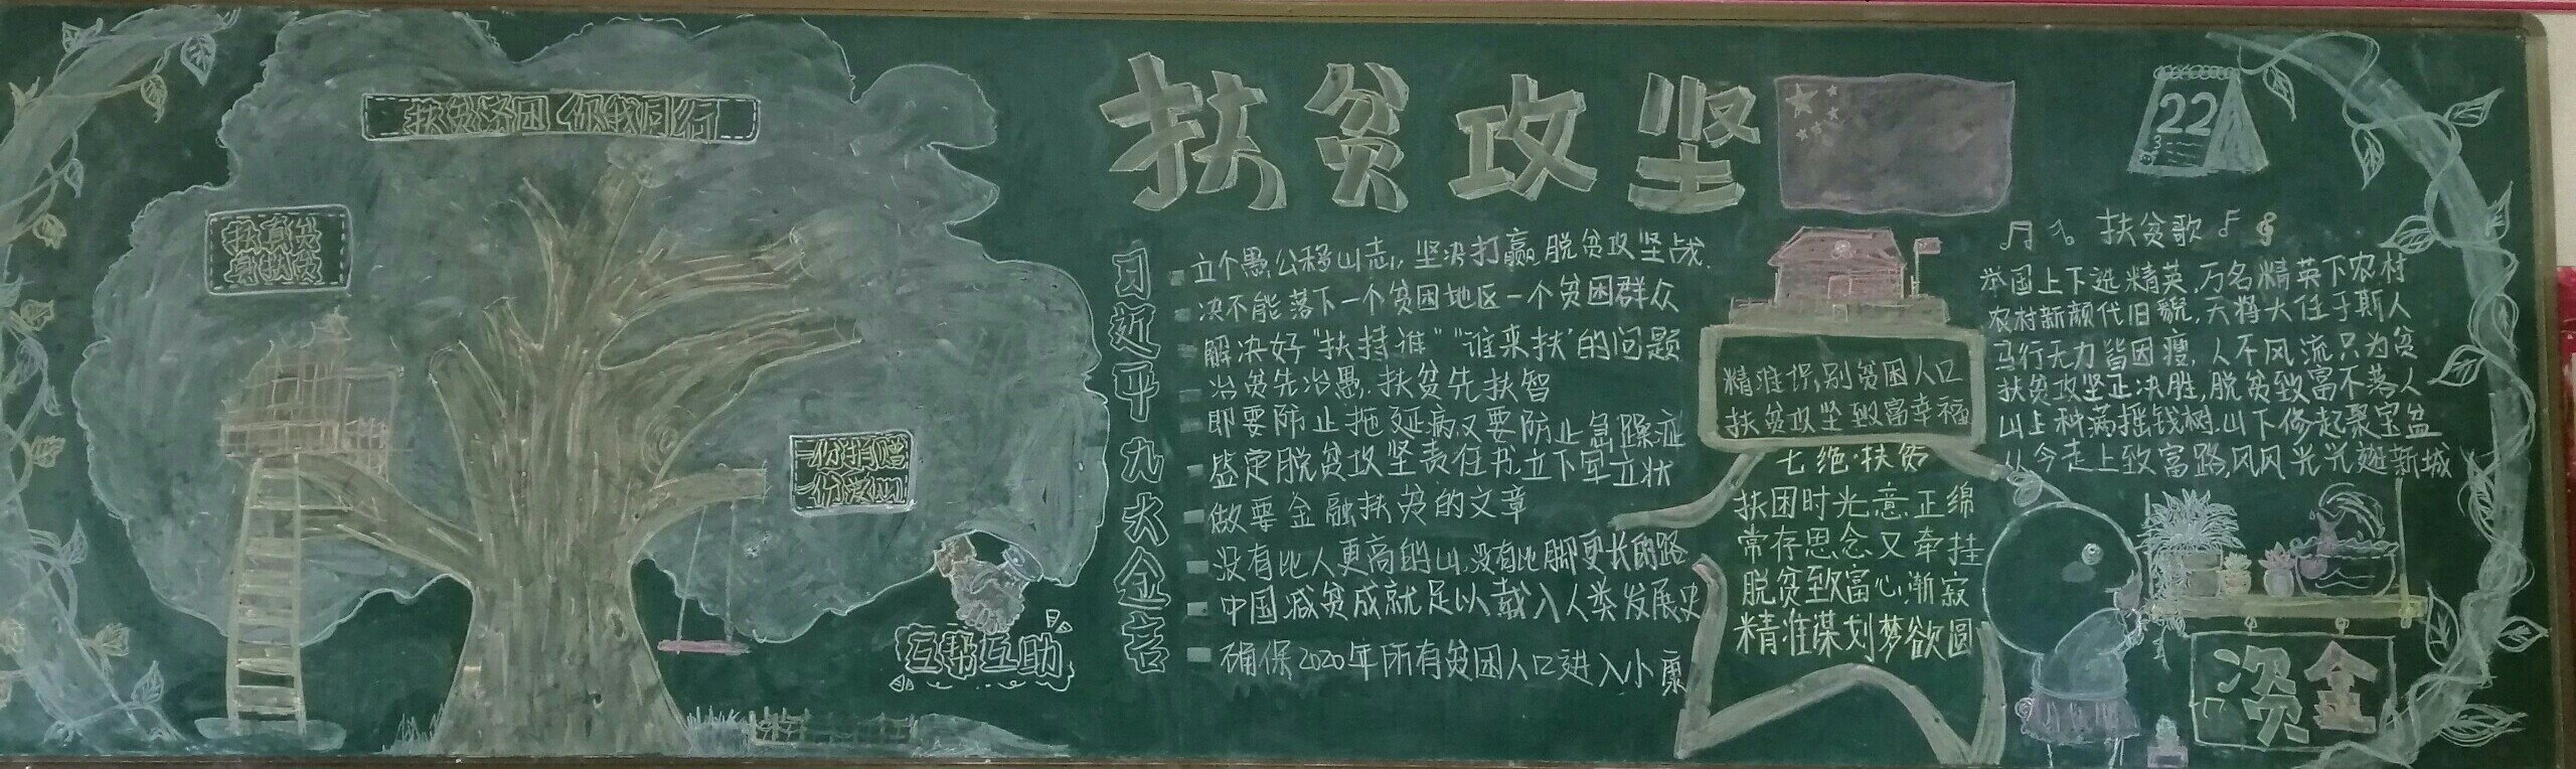 扶贫济困 你我同行
扶真贫
真扶贫
一份捐赠
一份爱心
互帮互助
扶贫攻坚
22
3
习近平九大金言
立个愚公移山志，坚决打赢脱贫攻坚战.
决不能落下一个贫困地区一个贫困群众
解决好"扶持谁""谁来扶"的问题
治贫先治愚.扶贫先扶智
即要防止拖延病,又要防止急躁症
签定脱贫攻坚责任书,立下军立状
做要金融扶贫的文章
没有比人更高的山,没有比脚更长的路
中国减贫成就足以载入人类发展史
确保2020年所有贫困人口进入小康
精准识别贫困人口
扶贫攻坚致富幸福
七绝·扶贫
扶困时光意正绵
常存思念又牵挂
脱贫致富心渐寂
精准谋划梦欲圆
扶贫歌
举国上下选精英,万名精英下农村
农村新颜代旧貌,天将大任于斯人
马行无力皆因瘦,人不风流只为贫
扶贫攻坚正决胜,脱贫致富不落人
山上种满摇钱树.山下修起聚宝盆
从今走上致富路,风风光光逛新城
资金